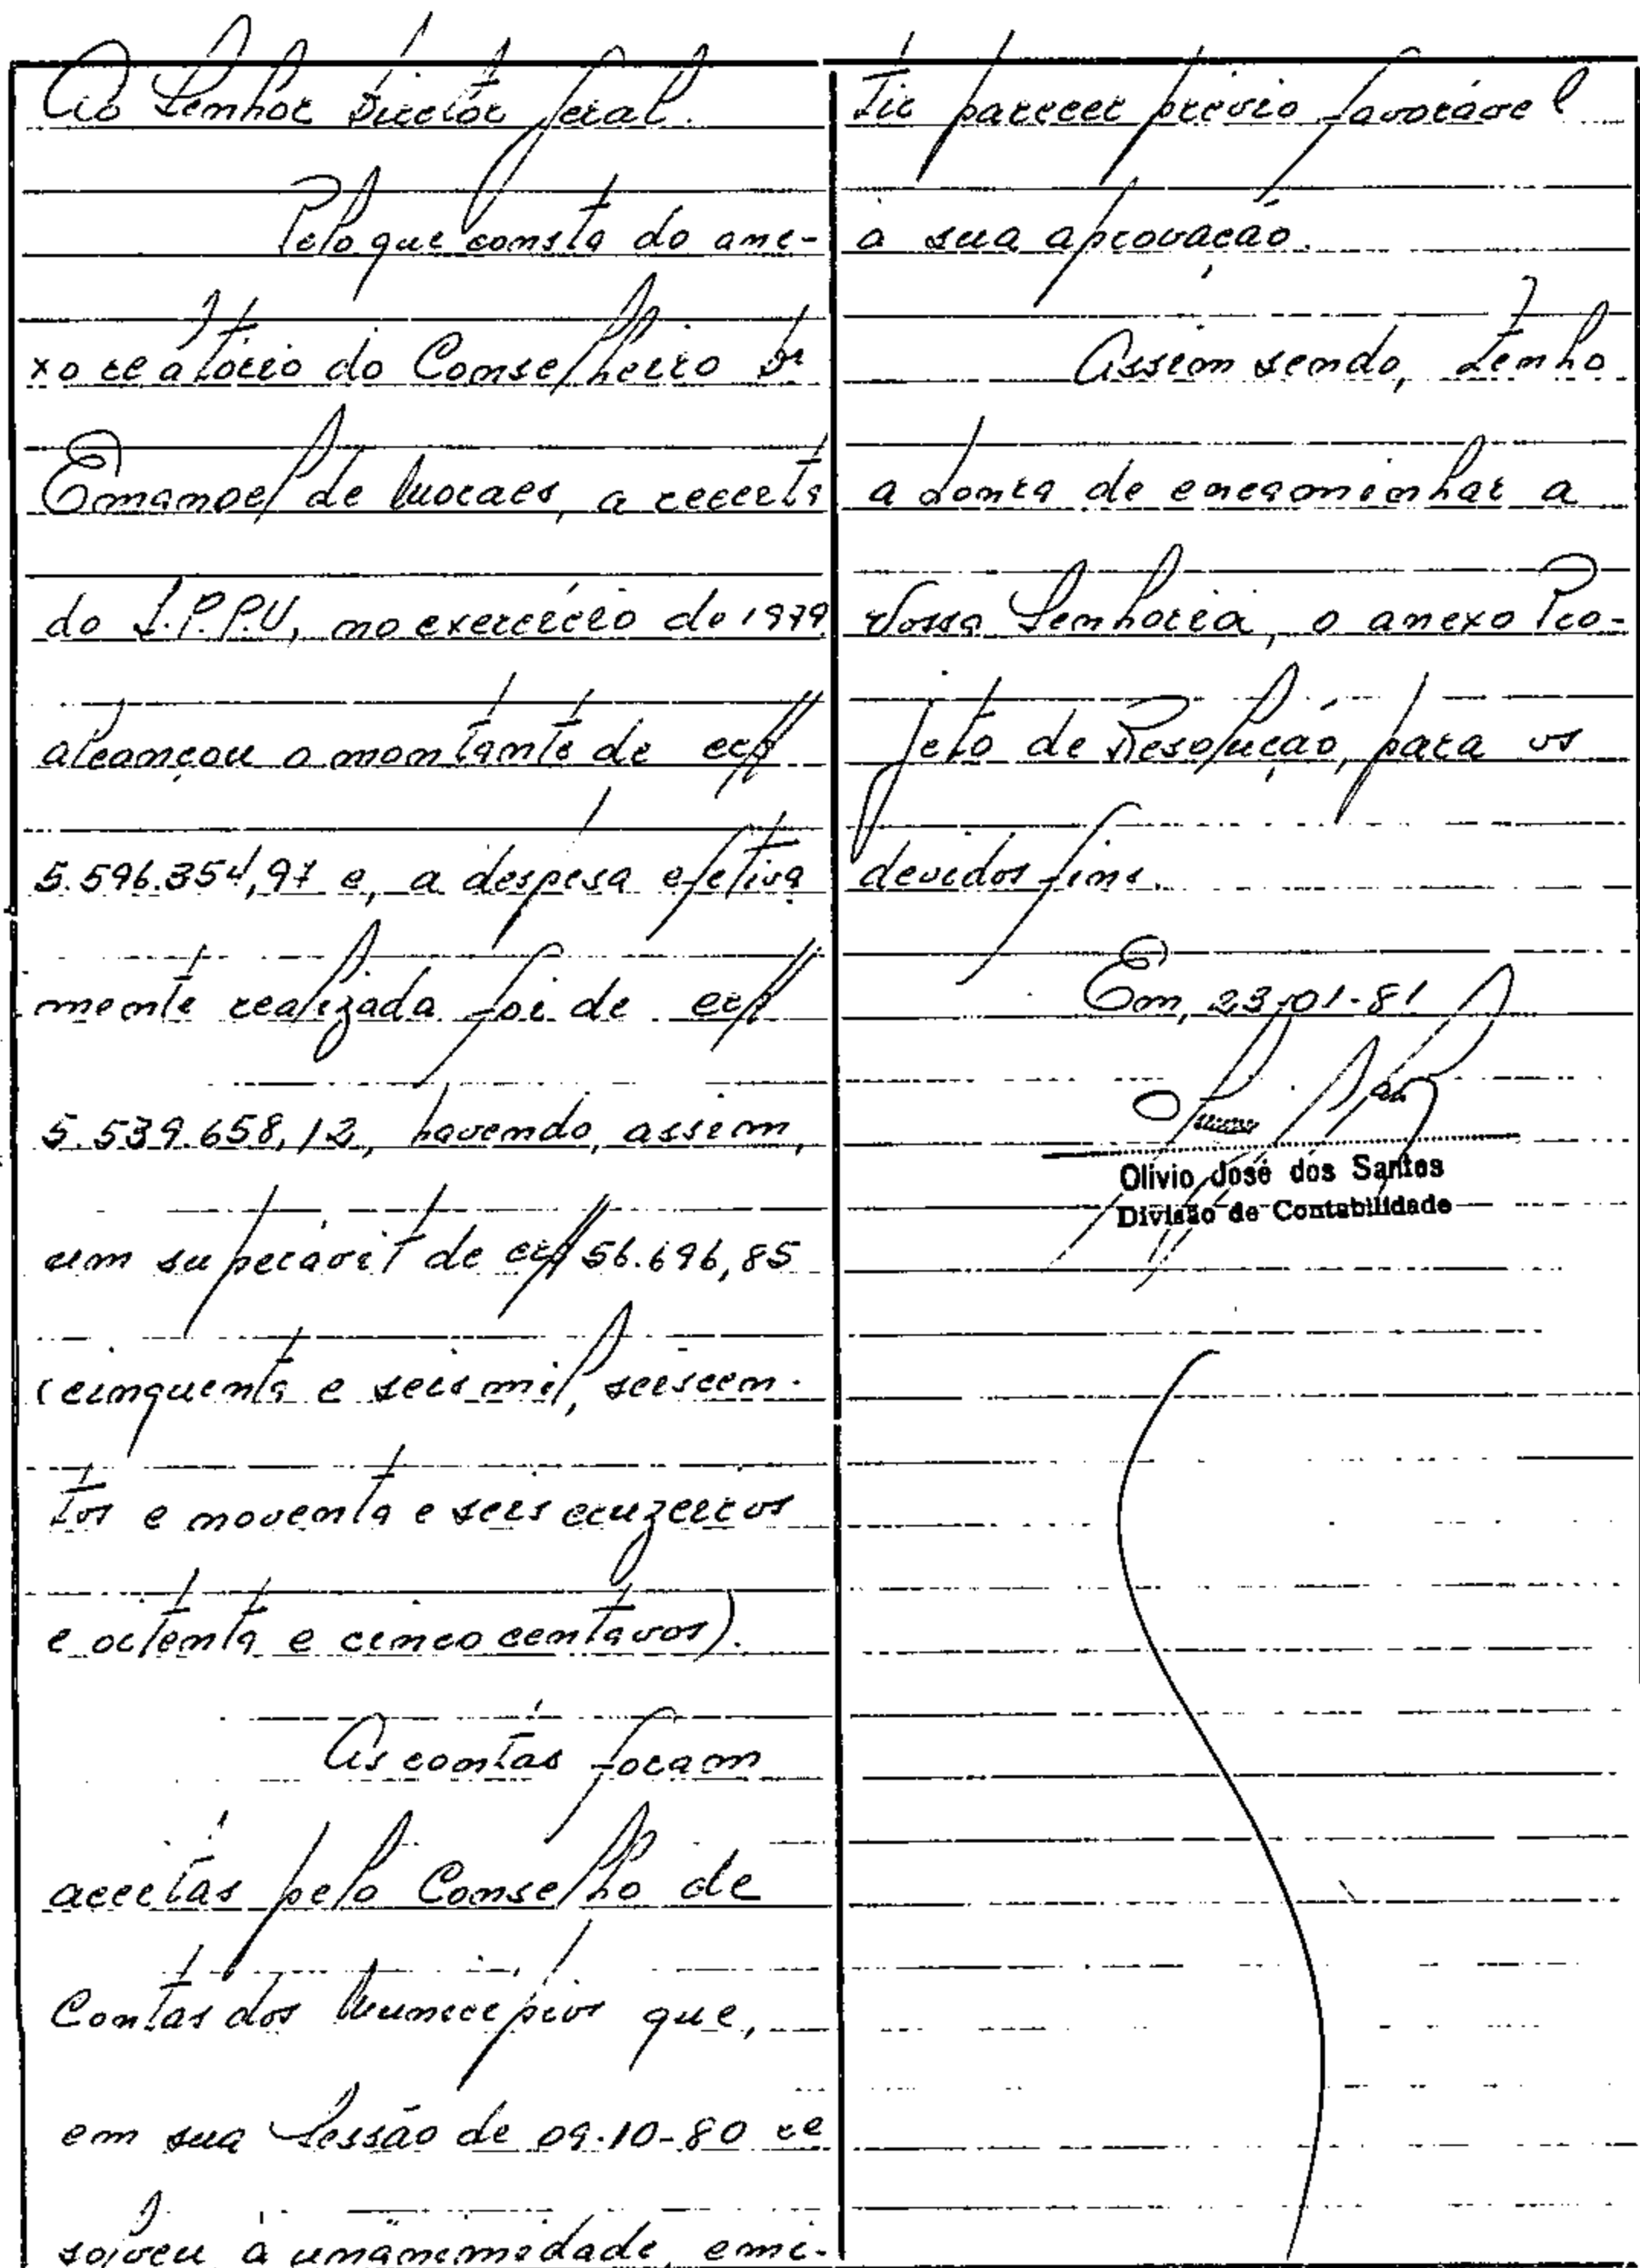 Ao Senhor Diretor Geral.
Pelo que consta do ane-
xo relatório do Conselheiro Dr
Emanoel de Moraes, a receita
do I.P.P.U, no exercício de 1979
alcançou o montante de cr$
5.596.354,97 e, a despesa efetiva
mente realizada foi de cr$
5.539.658,12, havendo, assim,
um superávit de cr$ 56.696,85
(cinquenta e seis mil, seiscen-
tos e noventa e seis cruzeiros
e oitenta e cinco centavos).
As contas foram
aceitas pelo Conselho de
Contas dos Municípios que,
em sua Sessão de 09-10-80 re
solveu à unanimidade, emi-
tir parecer prévio favorável
à sua aprovação.
Assim sendo, tenho
a honra de encaminhar a
Vossa Senhoria, o anexo Pro-
jeto de Resolução, para os
devidos fins.
Em, 23-01-81
Olivio José dos Santos
Divisão de Contabilidade